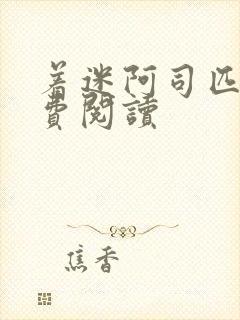 着迷阿司匹
費閱讀
焦香